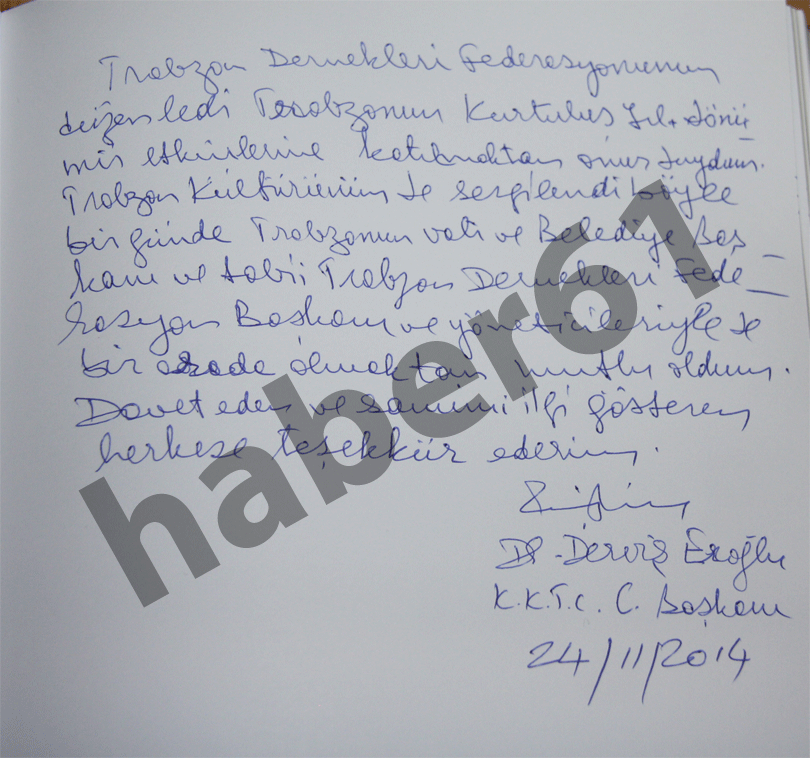 Trabzon Dernekleri Federasyonunun
düzenledi Trabzonun Kurtuluş Yıl dönü
mü etkinlerine katılmaktan onur duydum.
Trabzon Kültürünün de sergilendi böyle
bir günde Trabzonun vali ve Belediye Baş
kanı ve tabii Trabzon Dernekleri Fede
rasyon Başkanı ve yöneticileriyle de
bir arada olmaktan mutlu oldum.
Davet eden ve samimi ilgi gösteren
herkese teşekkür ederim.
Dr. Derviş Eroğlu
K.K.T.C. C. Başkanı
24/11/2014
haber61